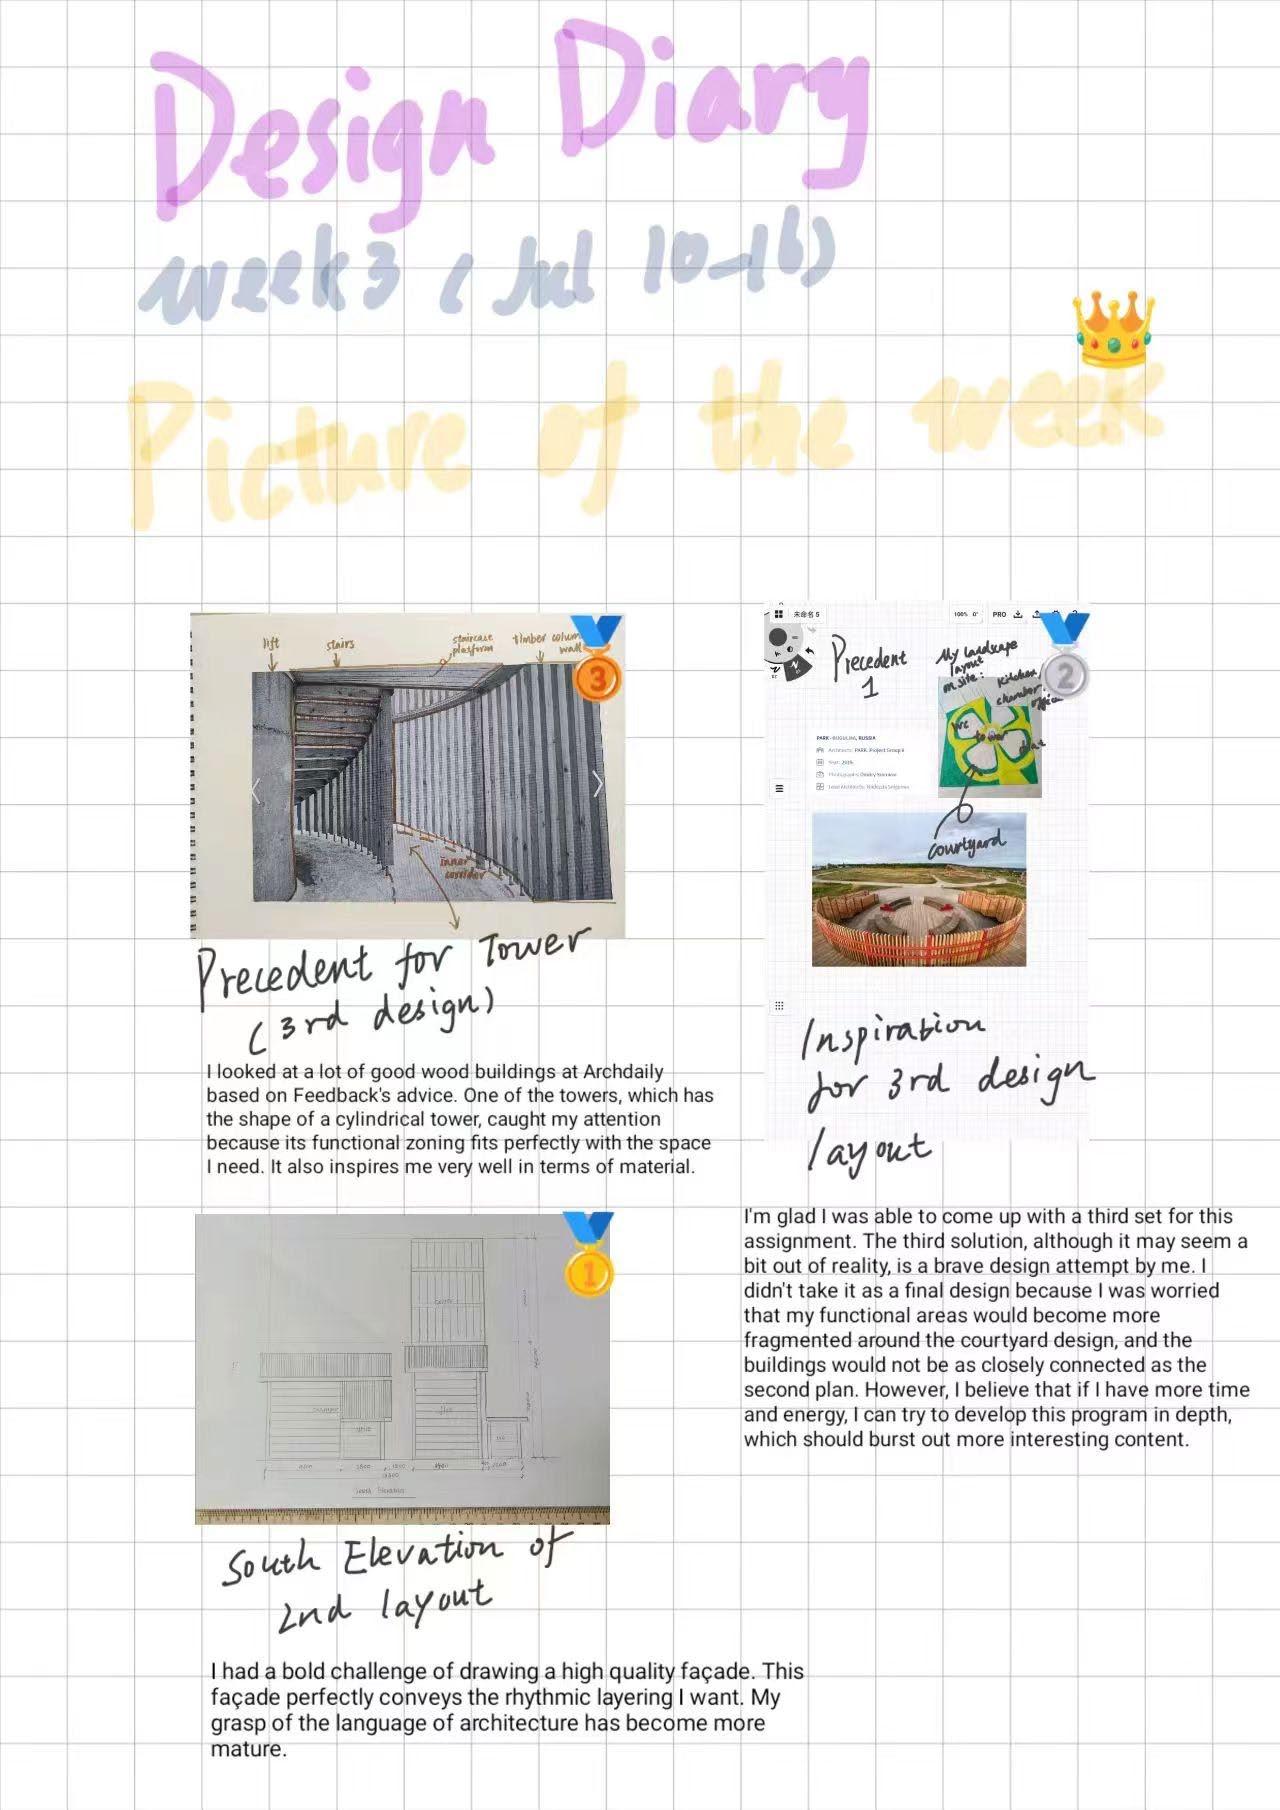 Design Diary
week3 (Jul 10-16)
Picture of the week
lift
stairs
staircase
platform
timber column
wall
3
inner
corridor
Precedent for Tower
(3rd design)
I looked at a lot of good wood buildings at Archdaily
based on Feedback's advice. One of the towers, which has
the shape of a cylindrical tower, caught my attention
because its functional zoning fits perfectly with the space
I need. It also inspires me very well in terms of material.
未命名 5
100% 0°
PRO
2
Precedent
1
My landscape
layout
on site:
kitchen
chamber office
WC
tower
PARK · BUGULMA, RUSSIA
Architects: PARK. Project Group 8
Year: 2019
courtyard
Inspiration
for 3rd design
layout
I'm glad I was able to come up with a third set for this
assignment. The third solution, although it may seem a
bit out of reality, is a brave design attempt by me. I
didn't take it as a final design because I was worried
that my functional areas would become more
fragmented around the courtyard design, and the
buildings would not be as closely connected as the
second plan. However, I believe that if I have more time
and energy, I can try to develop this program in depth,
which should burst out more interesting content.
1
South Elevation
South Elevation of
2nd layout
I had a bold challenge of drawing a high quality façade. This
façade perfectly conveys the rhythmic layering I want. My
grasp of the language of architecture has become more
mature.